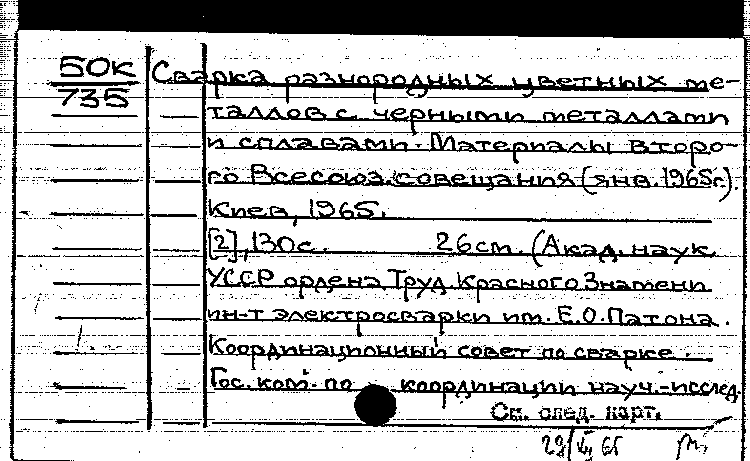 50К
735
Сварка разнородных цветных ме-
таллов с черными металлами
и сплавами. Материалы второ-
го Всесоюз. совещания (янв. 1965г.).
Киев, 1965.
[2], 130с. 26см. (Акад. наук
УССР ордена Труд. Красного Знамени
ин-т электросварки им. Е.О. Патона.
Координационный совет по сварке.
Гос. ком. по координации науч.-исслед.
См. след. карт.